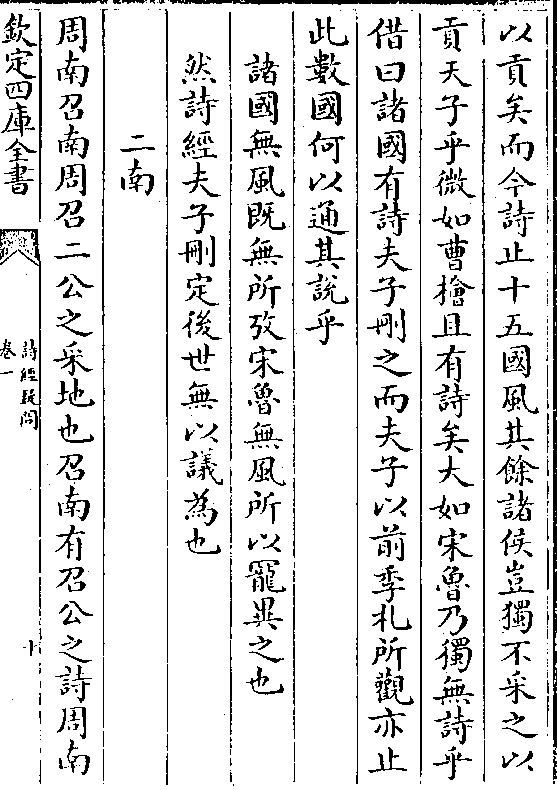 以貢矣而今詩止十五國風其餘諸侯豈獨不采之以
貢天子乎微如曹檜且有詩矣大如宋魯乃獨無詩乎
借曰諸國有詩夫子刪之而夫子以前季札所觀亦止
此數國何以通其說乎
諸國無風既無所攷宋魯無風所以寵異之也
然詩經夫子刪定後世無以議為也
二南
周南召南周召二公之采地也召南有召公之詩周南
欽定四庫全書
詩經疑問
卷一
十